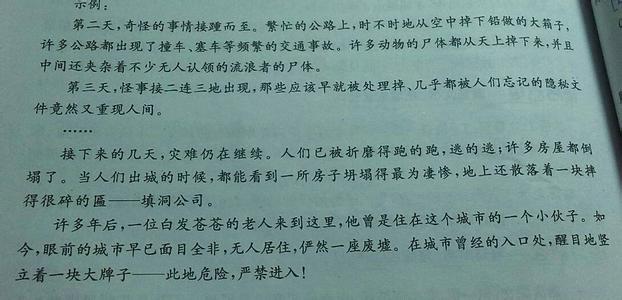 示例：
第二天，奇怪的事情接踵而至。繁忙的公路上，时不时地从空中掉下铅做的大箱子，
许多公路都出现了撞车、塞车等频繁的交通事故。许多动物的尸体都从天上掉下来，并且
中间还夹杂着不少无人认领的流浪者的尸体。
第三天，怪事接二连三地出现，那些应该早就被处理掉、几乎都被人们忘记的隐秘文
件竟然又重现人间。
……
接下来的几天，灾难仍在继续。人们已被折磨得跑的跑，逃的逃；许多房屋都倒
塌了。当人们出城的时候，都能看到一所房子坍塌得最为凄惨，地上还散落着一块摔
得很碎的匾——填洞公司。
许多年后，一位白发苍苍的老人来到这里，他曾是住在这个城市的一个小伙子。如
今，眼前的城市早已面目全非，无人居住，俨然一座废墟。在城市曾经的入口处，醒目地竖
立着一块大牌子——此地危险，严禁进入！